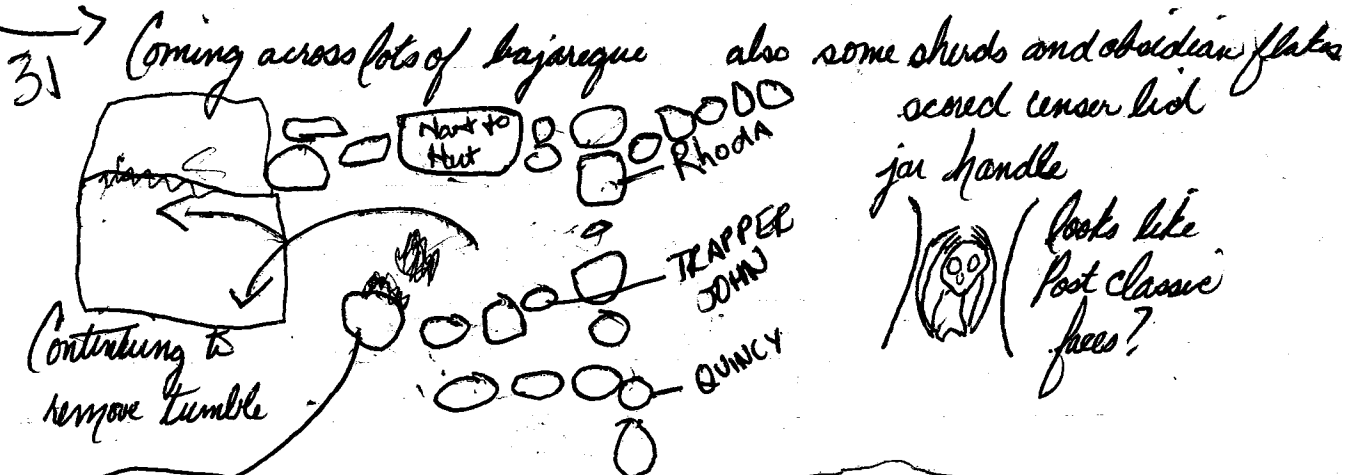 31 Coming across lots of bajareque also some sherds and obsidian flakes
scored censer lid
jar handle
Hut
Rhoda
looks like
Post classic
faces?
TRAPPER
JOHN
QUINCY
Continuing to
remove tumble